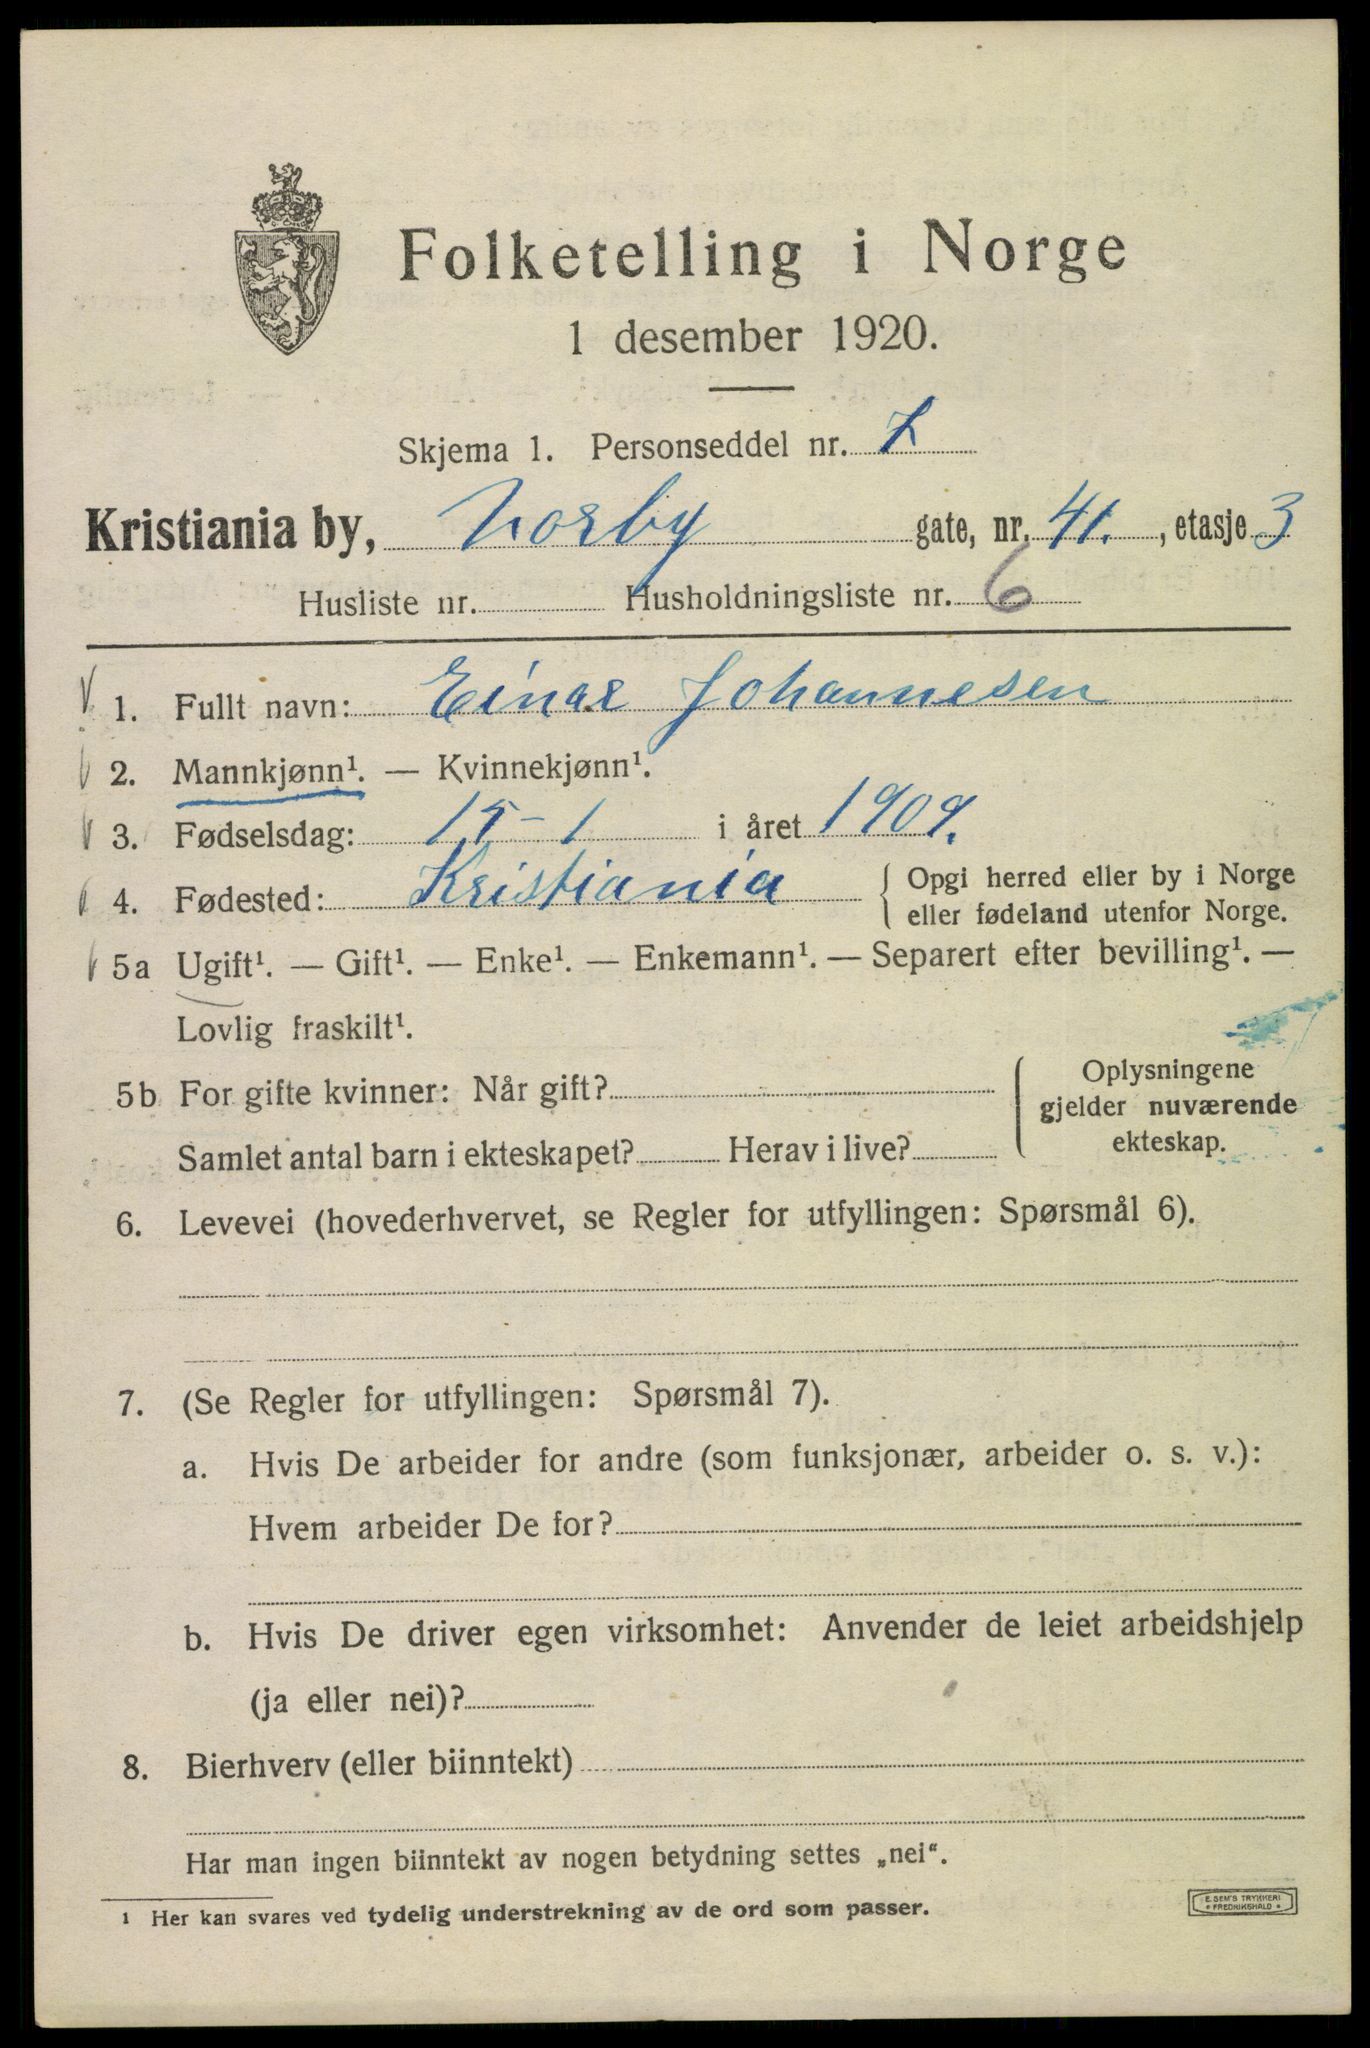 Folketelling i Norge
1 desember 1920.
Skjema 1. Personseddel nr.
Kristiania by, Norby gate, nr. 41. , etasje 3
Husliste nr. Husholdningsliste nr. 6
1. Fullt navn: Einar Johannesen
2. Mannkjønn¹. — Kvinnekjønn¹.
3. Fødselsdag: 15-1 i året 1909.
4. Fødested: Kristiania { Opgi herred eller by i Norge
eller fødeland utenfor Norge.
5a Ugift¹. — Gift¹. — Enke¹. — Enkemann¹. — Separert efter bevilling¹. —
Lovlig fraskilt¹.
5b For gifte kvinner: Når gift? Oplysningene
gjelder nuværende
Samlet antal barn i ekteskapet? Herav i live? ekteskap.
6. Levevei (hovederhvervet, se Regler for utfyllingen: Spørsmål 6).
7. (Se Regler for utfyllingen: Spørsmål 7).
a. Hvis De arbeider for andre (som funksjonær, arbeider o. s. v.):
Hvem arbeider De for?
b. Hvis De driver egen virksomhet: Anvender de leiet arbeidshjelp
(ja eller nei)?
8. Bierhverv (eller biinntekt)
Har man ingen biinntekt av nogen betydning settes „nei“.
1 Her kan svares ved tydelig understrekning av de ord som passer.
E. SEM'S TRYKKERI
* FREDRIKSHALD *